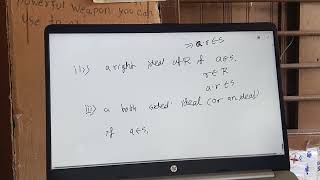 powerful weapon you can
use to
⇒ a·r ∈ S
iii) a right ideal of R if a∈S,
r∈R
a·r ∈ S
iii) a both sided ideal (or an ideal)
if a∈S,
hp